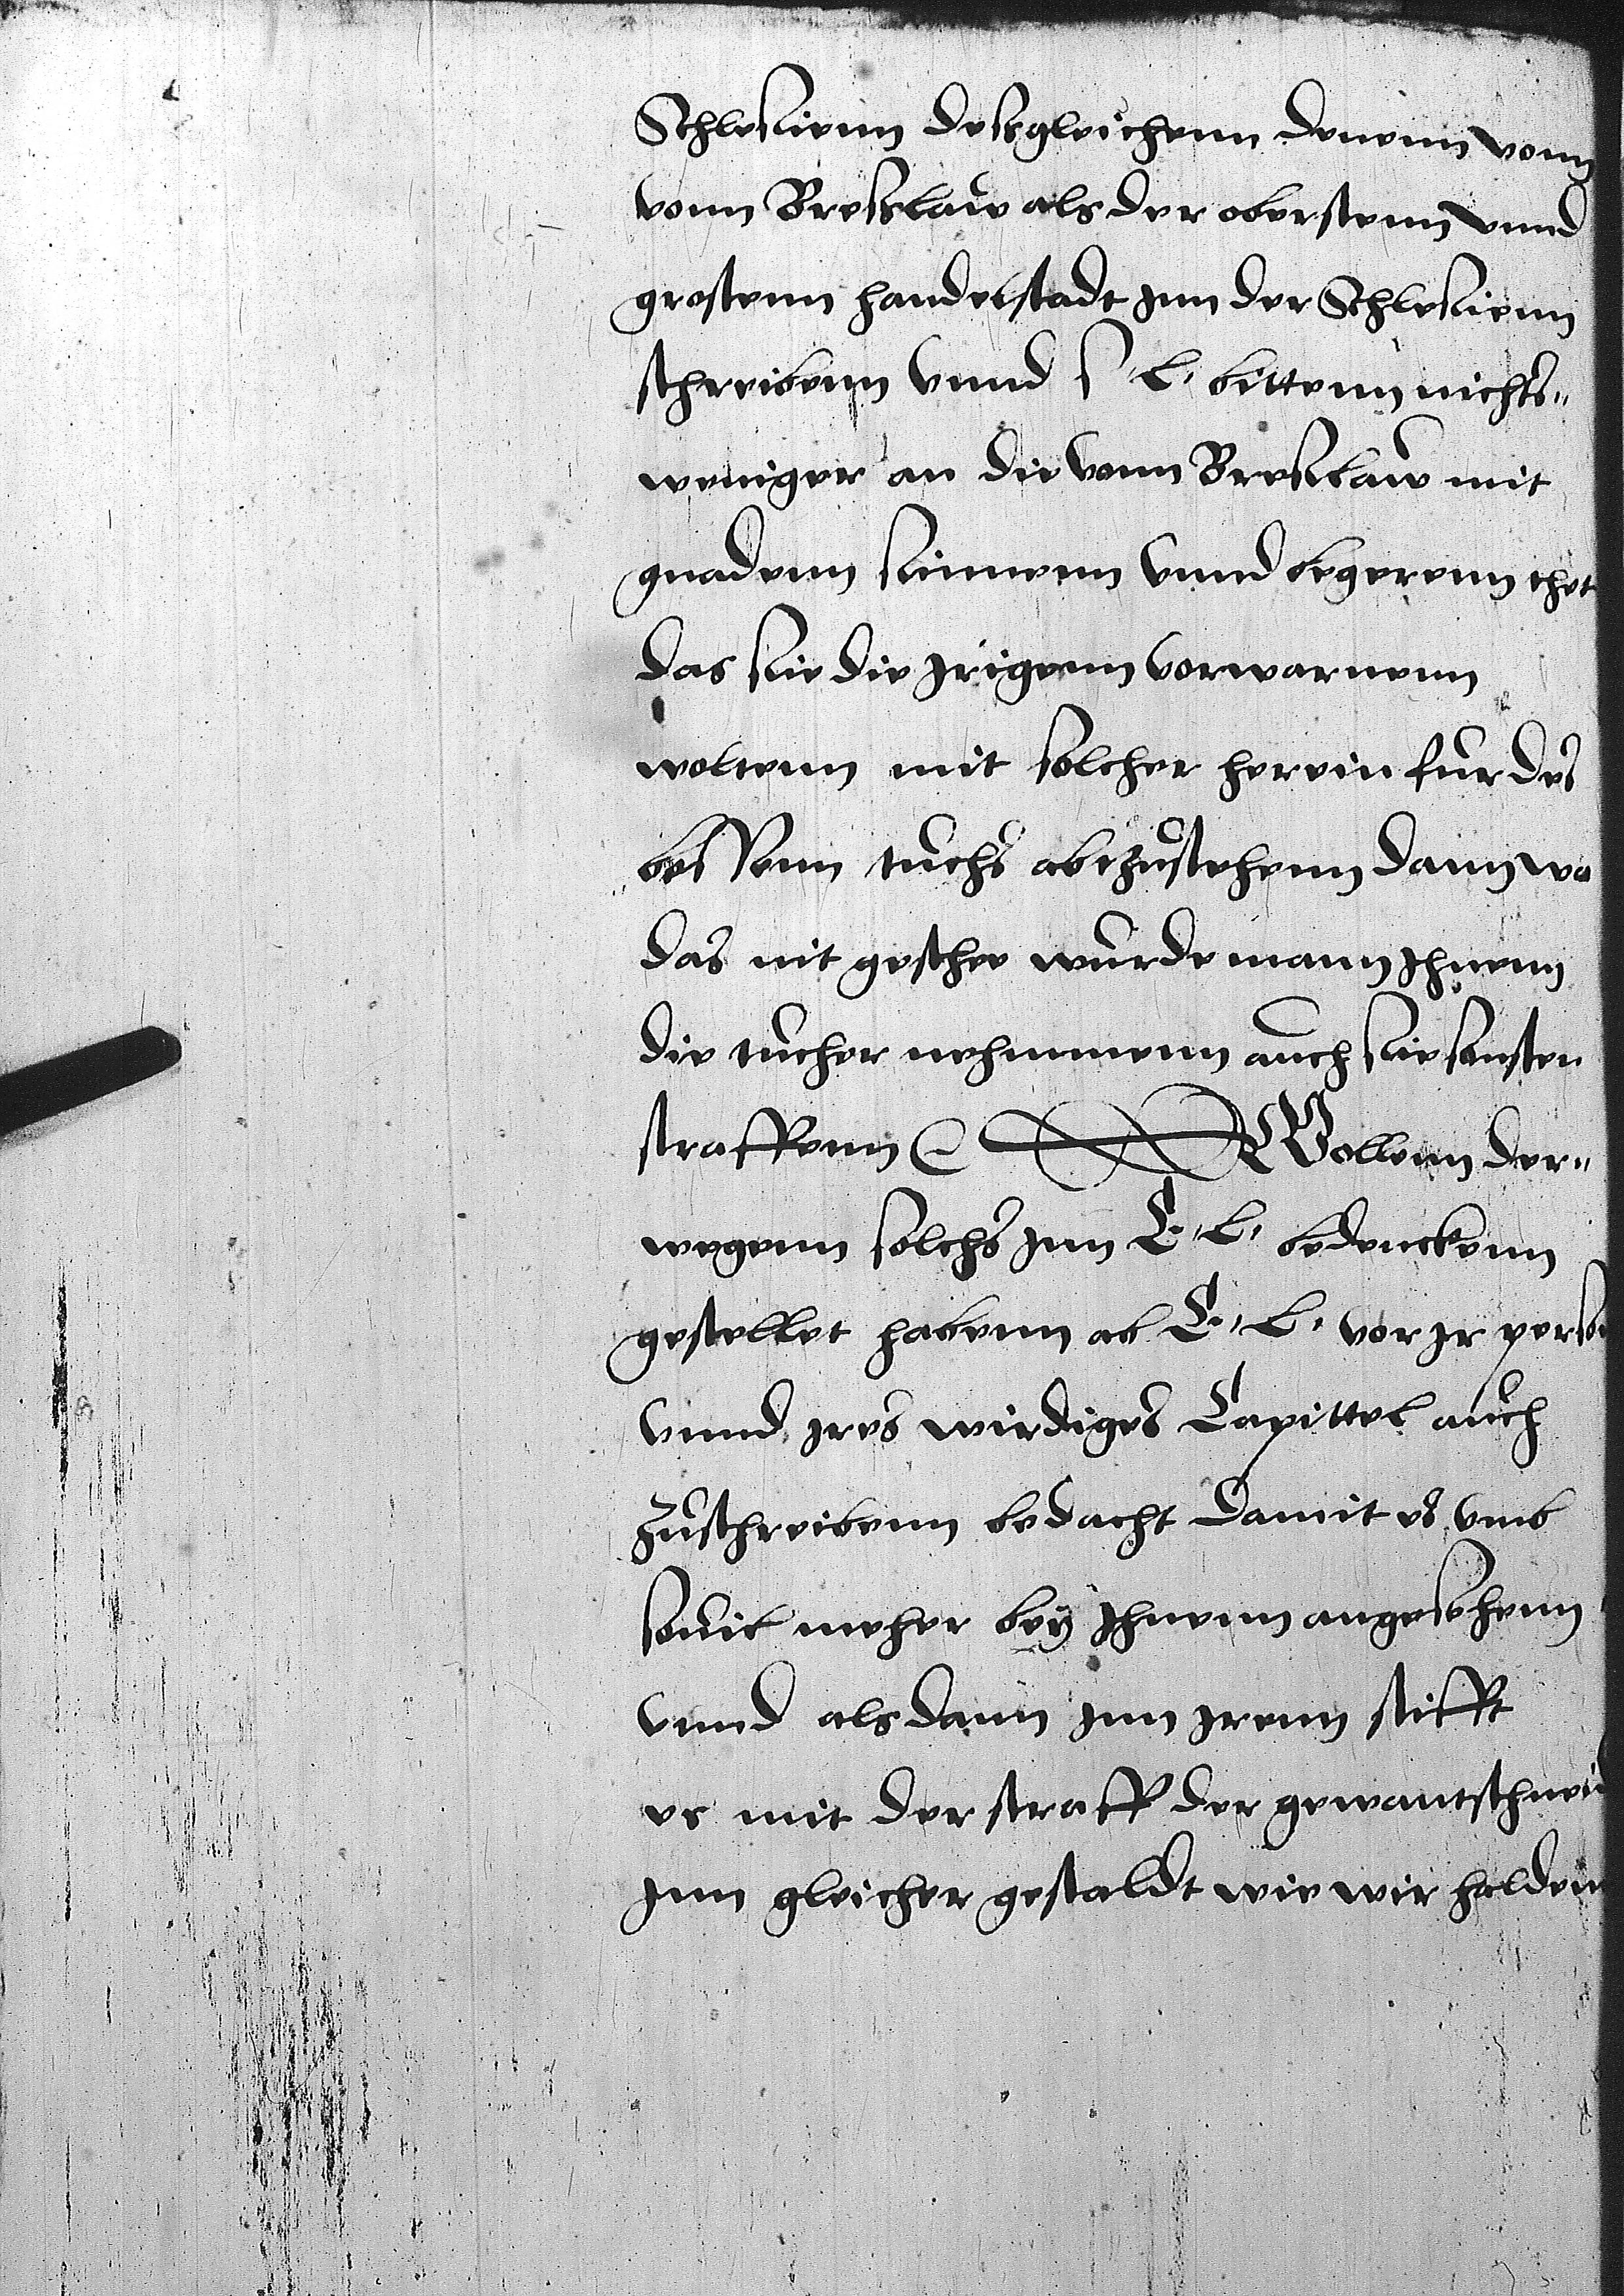 Schlesienn desgleichenn denenn vonn
vonn Breslaw als der oberstenn vnnd
grostenn handelstadt jnn der Schlesienn
schreibenn vnnd s. l. bittenn nichts„
weniger an die vonn Breslaw mit
gnadenn sinnenn vnnd begerenn thet
das sie die jrigenn vorwarnenn
woltenn mit solcher herein fur des
bossenn tuchs abezustehenn dann wa
das nit geschee wurde mann Jhnenn
die tucher nehmmenn auch sie sunsten
straffenn Wollenn der„
wegenn solchs jnn E. l. bedenckenn
gestellet habenn ab E. l. vor jr perso
vnnd jres wirdiges Capittel auch
zuschreibenn bedacht damit es vmb
souil meher bey Jhnenn angesehenn
vnnd als dann jnn jrenn stifft
es mit der straff der gewantschneid
jnn gleicher gestaldt wie wir haldenn